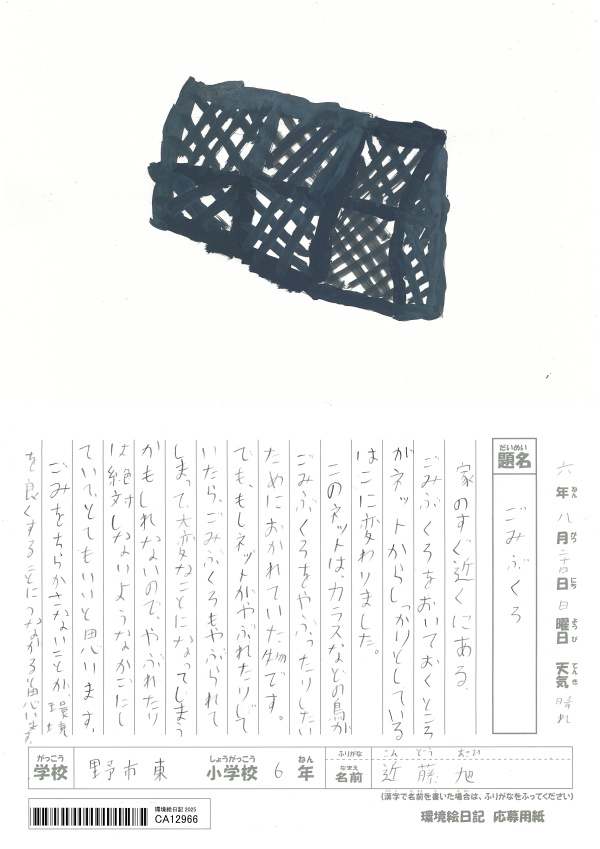 六年八月二十四日日曜日天気晴れ
ねんがつにちようびてんき
だいめい
題名
ごみぶくろ
家のすぐ近くにある、
ごみぶくろをおいておくところ
がネットからしっかりとしている
はこに変わりました。
このネットは、カラスなどの鳥が
ごみぶくろをやぶったりしない
ためにおかれていた物です。
でも、もしネットがやぶれたりして
いたら、ごみぶくろもやぶられて
しまって、大変なことになってしまう
かもしれないので、やぶれたり
は絶対しないようなかごにし
ていて、とてもいいと思います。
ごみをちらかさないことが、環境
を良くすることにつながると思います。
がっこう
学校
野市東
しょうがっこう
小学校
6
ねん
年
ふりがな
こんどう あさひ
なまえ
名前
近藤 旭
(漢字で名前を書いた場合は、ふりがなをふってください)
環境絵日記 2025
CA12966
環境絵日記 応募用紙